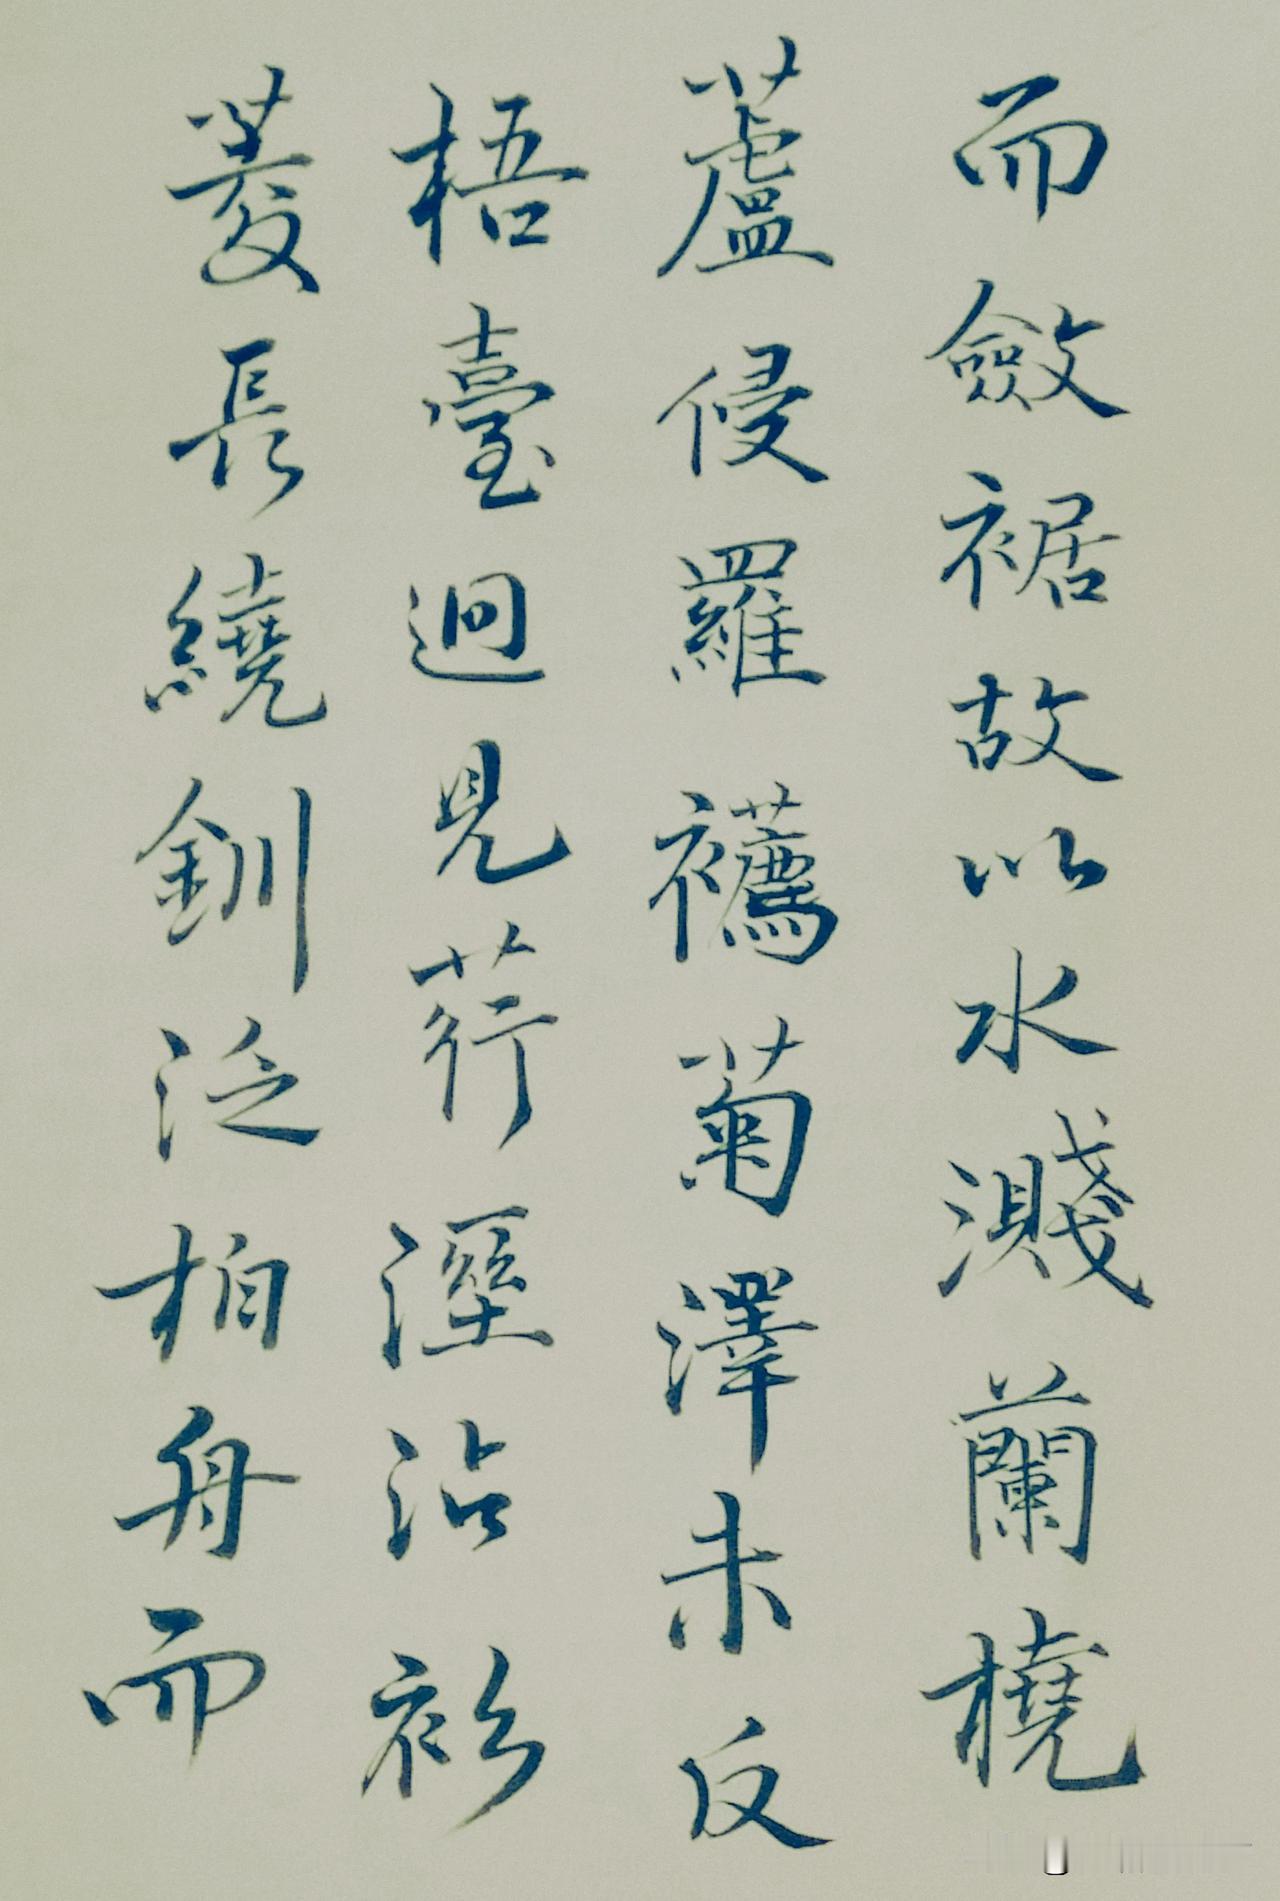 而斂裾故以水濺蘭橈
蘆侵羅䙰菊澤未反
梧臺迥見荇溼沾衫
菱長繞釧泛柏舟而